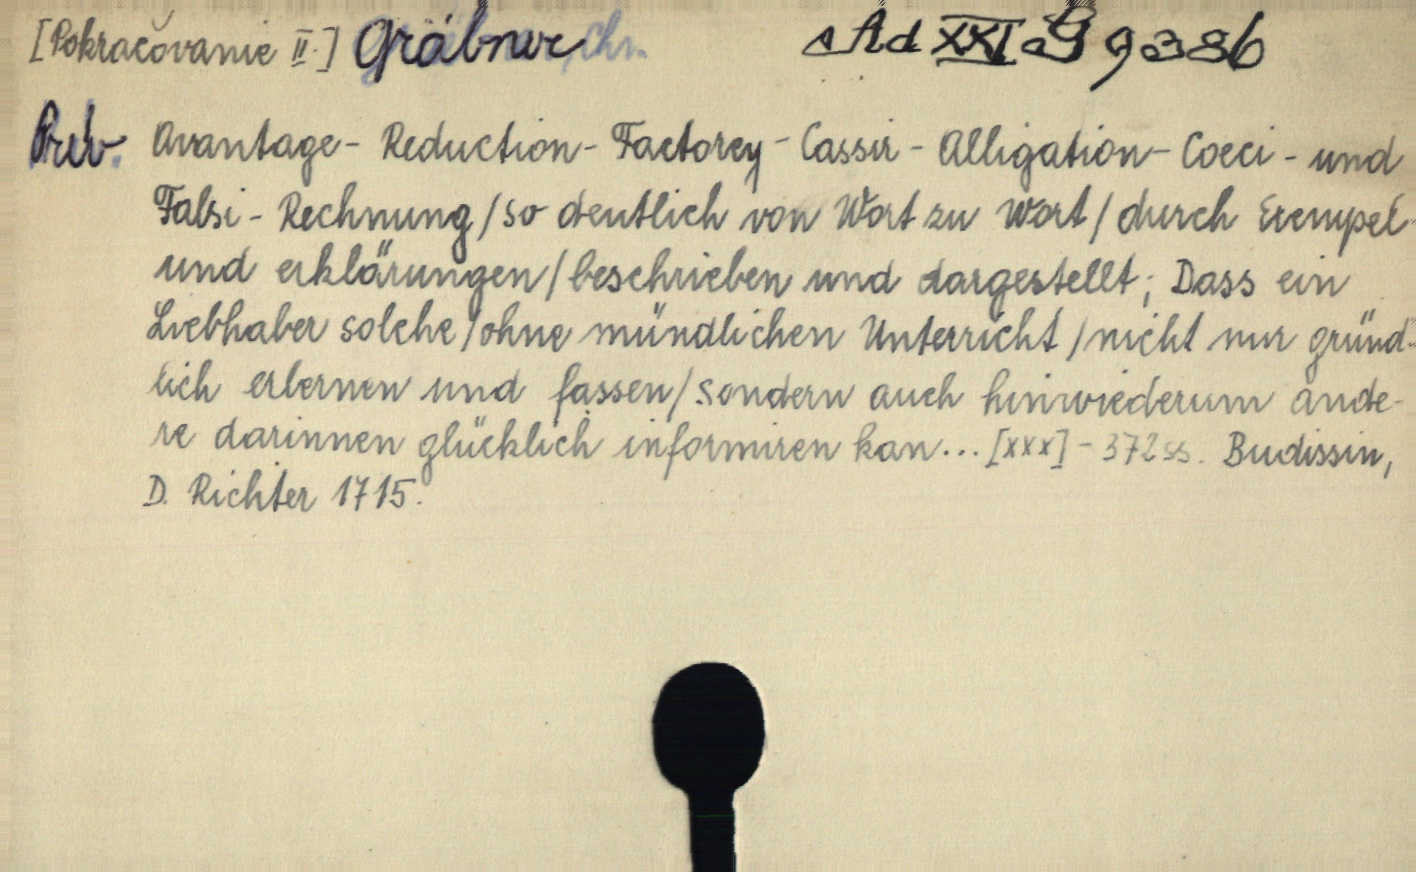 [Pokračovanie II.] Gräbner, Chr. Ad XXI B 9386
Prív. Avantage- Reduction- Factorey- Cassir- Alligation- Coeci- und
Falsi- Rechnung/so deutlich von Wort zu Wort/durch Exempel
und erklärungen/beschrieben und dargestellt; Dass ein
Liebhaber solche/ohne mündlichen Unterricht/nicht nur gründ-
lich erlernen und fassen/sondern auch hinwiederum ande-
re darinnen glücklich informiren kan... [xxx] - 372 ss. Budissin,
D. Richter 1715.